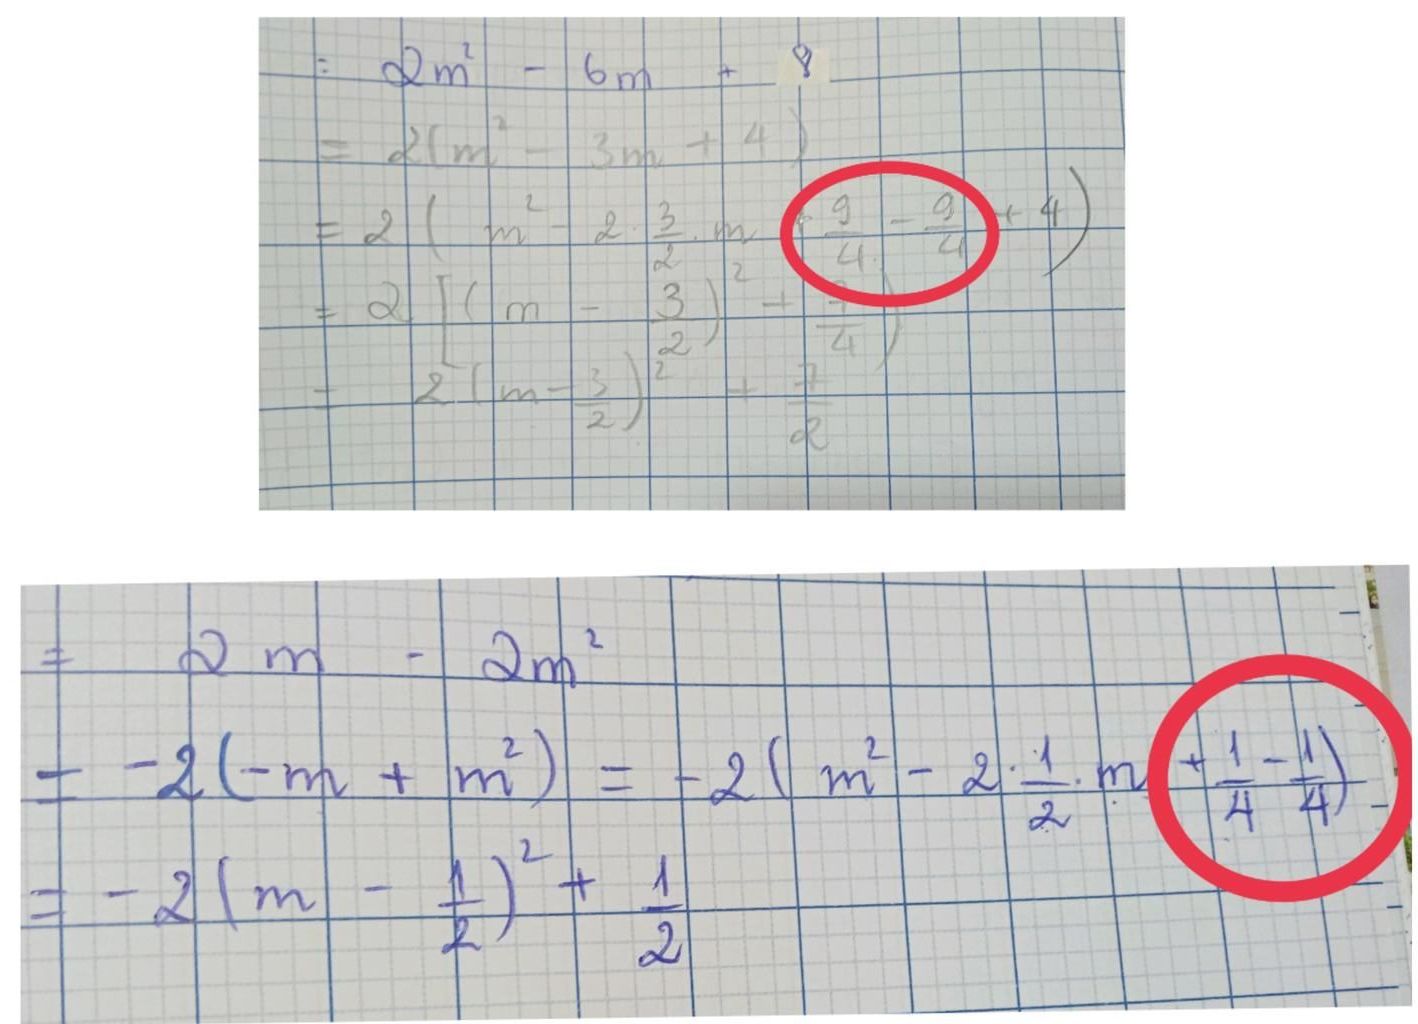 = 2m² - 6m + 8
= 2(m² - 3m + 4)
= 2 ( m² - 2 · 3/2 · m + 9/4 - 9/4 + 4 )
= 2 [ ( m - 3/2 )² + 7/4 )
= 2 ( m - 3/2 )² + 7/2
= 2m - 2m²
= -2(-m + m²) = -2( m² - 2 · 1/2 · m + 1/4 - 1/4 )
= -2( m - 1/2 )² + 1/2